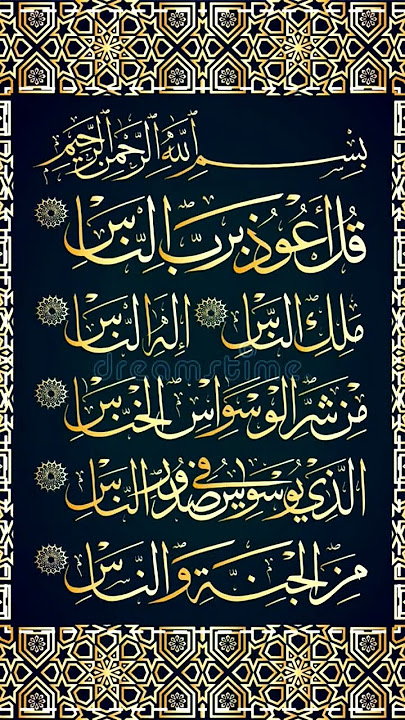 بِسْمِ اللَّهِ الرَّحْمَنِ الرَّحِيمِ
قُلْ أَعُوذُ بِرَبِّ النَّاسِ
مَلِكِ النَّاسِ إِلَهِ النَّاسِ
dreamstime.
مِنْ شَرِّ الْوَسْوَاسِ الْخَنَّاسِ
الَّذِي يُوَسْوِسُ فِي صُدُورِ النَّاسِ
مِنَ الْجِنَّةِ وَالنَّاسِ